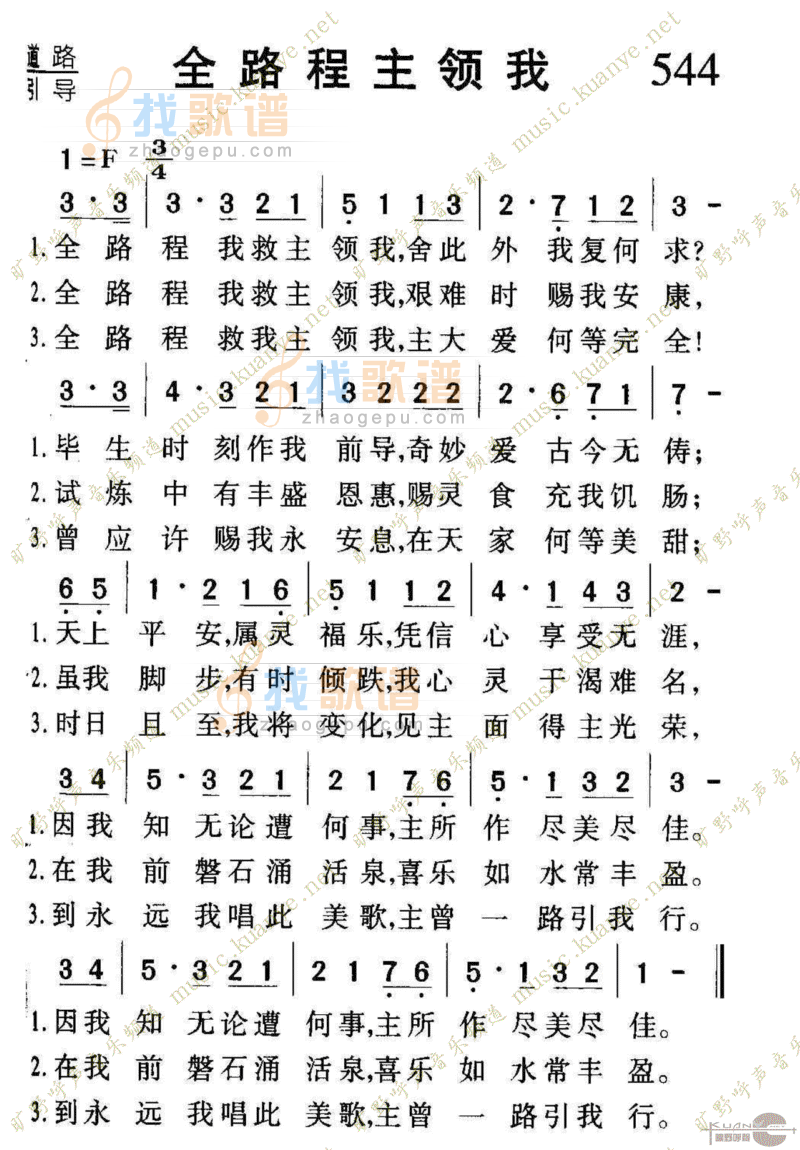 道路
引导
全路程主领我
544
1=F 3/4
3·3 | 3·3 2 1 | 5 1 1 3 | 2·7 1 2 | 3 -
1.全 路 程 我救主 领我,舍此 外 我复何 求?
2.全 路 程 我救主 领我,艰难 时 赐我安 康,
3.全 路 程 救我主 领我,主大 爱 何等完 全!
3·3 | 4·3 2 1 | 3 2 2 2 | 2·6 7 1 | 7 -
1.毕 生 时 刻作我 前导,奇妙 爱 古今无 俦;
2.试 炼 中 有丰盛 恩惠,赐灵 食 充我饥 肠;
3.曾 应 许 赐我永 安息,在天 家 何等美 甜;
6 5 | 1·2 1 6 | 5 1 1 2 | 4·1 4 3 | 2 -
1.天上 平 安,属灵 福乐,凭信 心 享受无 涯,
2.虽我 脚 步,有时 倾跌,我心 灵 干渴难 名,
3.时日 且 至,我将 变化,见主 面 得主光 荣,
3 4 | 5·3 2 1 | 2 1 7 6 | 5·1 3 2 | 3 -
1.因我 知 无论遭 何事,主所 作 尽美尽 佳。
2.在我 前 磐石涌 活泉,喜乐 如 水常丰 盈。
3.到永 远 我唱此 美歌,主曾 一 路引我 行。
3 4 | 5·3 2 1 | 2 1 7 6 | 5·1 3 2 | 1 - ‖
1.因我 知 无论遭 何事,主所 作 尽美尽 佳。
2.在我 前 磐石涌 活泉,喜乐 如 水常丰 盈。
3.到永 远 我唱此 美歌,主曾 一 路引我 行。
找歌谱
zhaogepu.com
找歌谱
zhaogepu.com
找歌谱
zhaogepu.com
旷野呼声音乐频道 music.kuanye.net
KUAN
旷野呼声